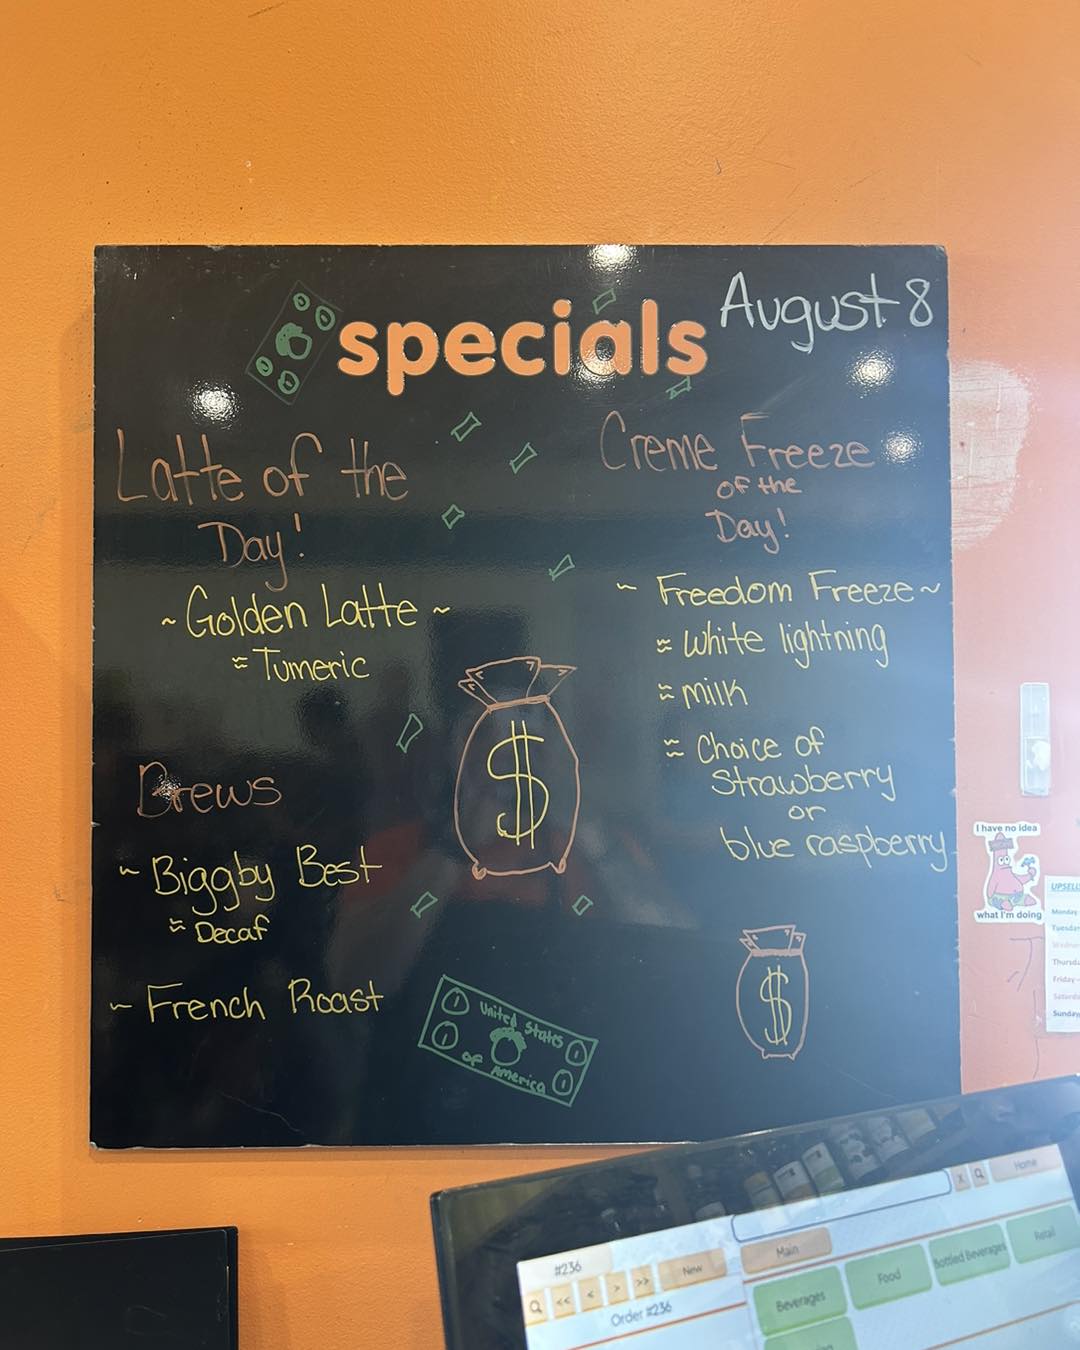 specials
August 8
Latte of the
Day!
~ Golden Latte ~
≈ Tumeric
Brews
~ Biggby Best
≈ Decaf
~ French Roast
Creme Freeze
of the
Day!
~ Freedom Freeze ~
≈ White lightning
≈ milk
≈ Choice of
Strawberry
or
blue raspberry
$
$
1
United States
1
1
of America
1
I have no idea
what I'm doing
UPSELL
Monday
Tuesday
Thursda
Friday
Saturda
Sunday
x
Home
#236
<<
<
>
>>
New
Order #236
Main
Beverages
Food
Bottled Beverages
Retail